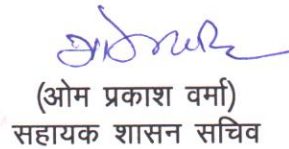 (ओम प्रकाश वर्मा)
सहायक शासन सचिव